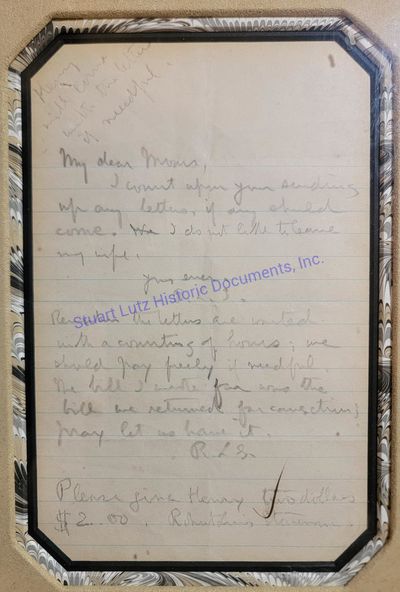 Henry
will come
with the letters
if needful.
My dear Moris,
I count upon your sending
up any letters, if any should
come. We I do not like to leave
my wife.
Yours ever
R.L.S.
Stuart Lutz Historic Documents, Inc.
the letters are wanted
with a counting of hours; we
should pay freely if needful.
The bill I wrote for was the
bill we returned for correction;
pray let us have it.
R L S.
Please give Henry two dollars
$2.00. Robert Louis Stevenson.